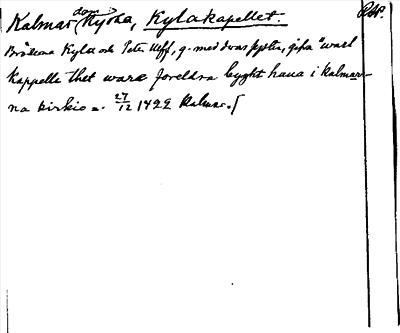 Kalmar dom kyrka, Kylakapellet.
Bröderna Kyle och Peter Ulff, g. med deras syster, gifva "wart
kappelle thet ware foreldra byght haua i Kalmar-
na kirkio =. 27/12 1422 Kalmar.